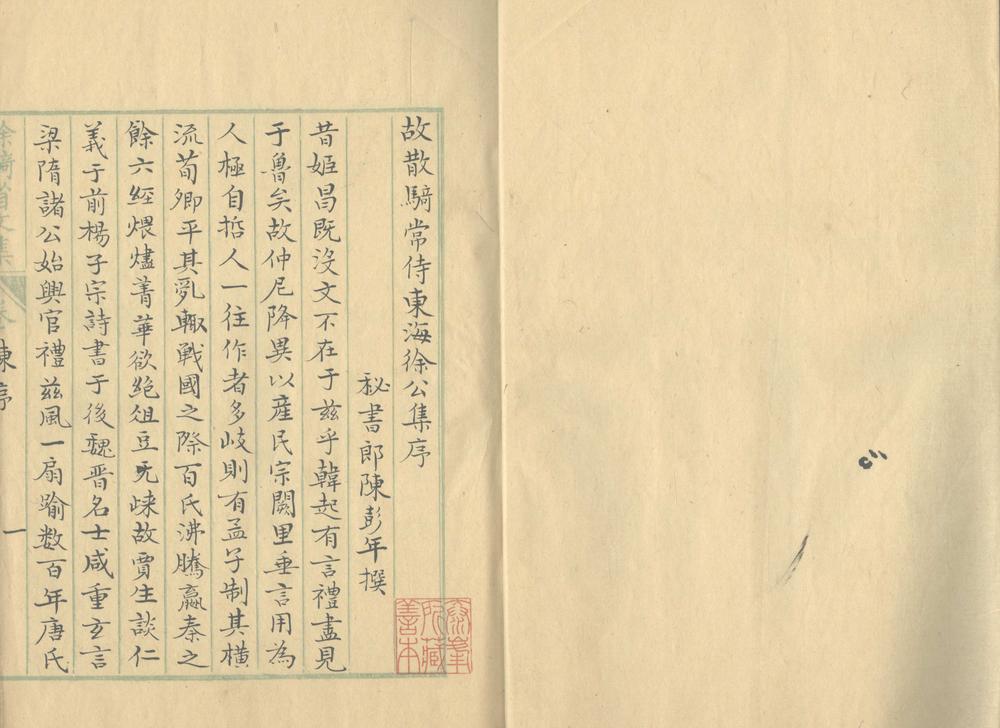 故散騎常侍東海徐公集序
秘書郎陳彭年撰
昔姬昌既沒文不在于茲乎韓起有言禮盡見
于魯矣故仲尼降異以産民宗闕里垂言用為
人極自哲人一往作者多岐則有孟子制其橫
流荀卿平其亂轍戰國之際百氏沸騰嬴秦之
餘六經煨燼菁華欲絶俎豆旡𡍼故賈生談仁
義于前楊子宗詩書于後魏晋名士咸重玄言
梁隋諸公始興官禮茲風一扇踰数百年唐氏
徐騎省文集
卷
陳序
一
善本
所藏